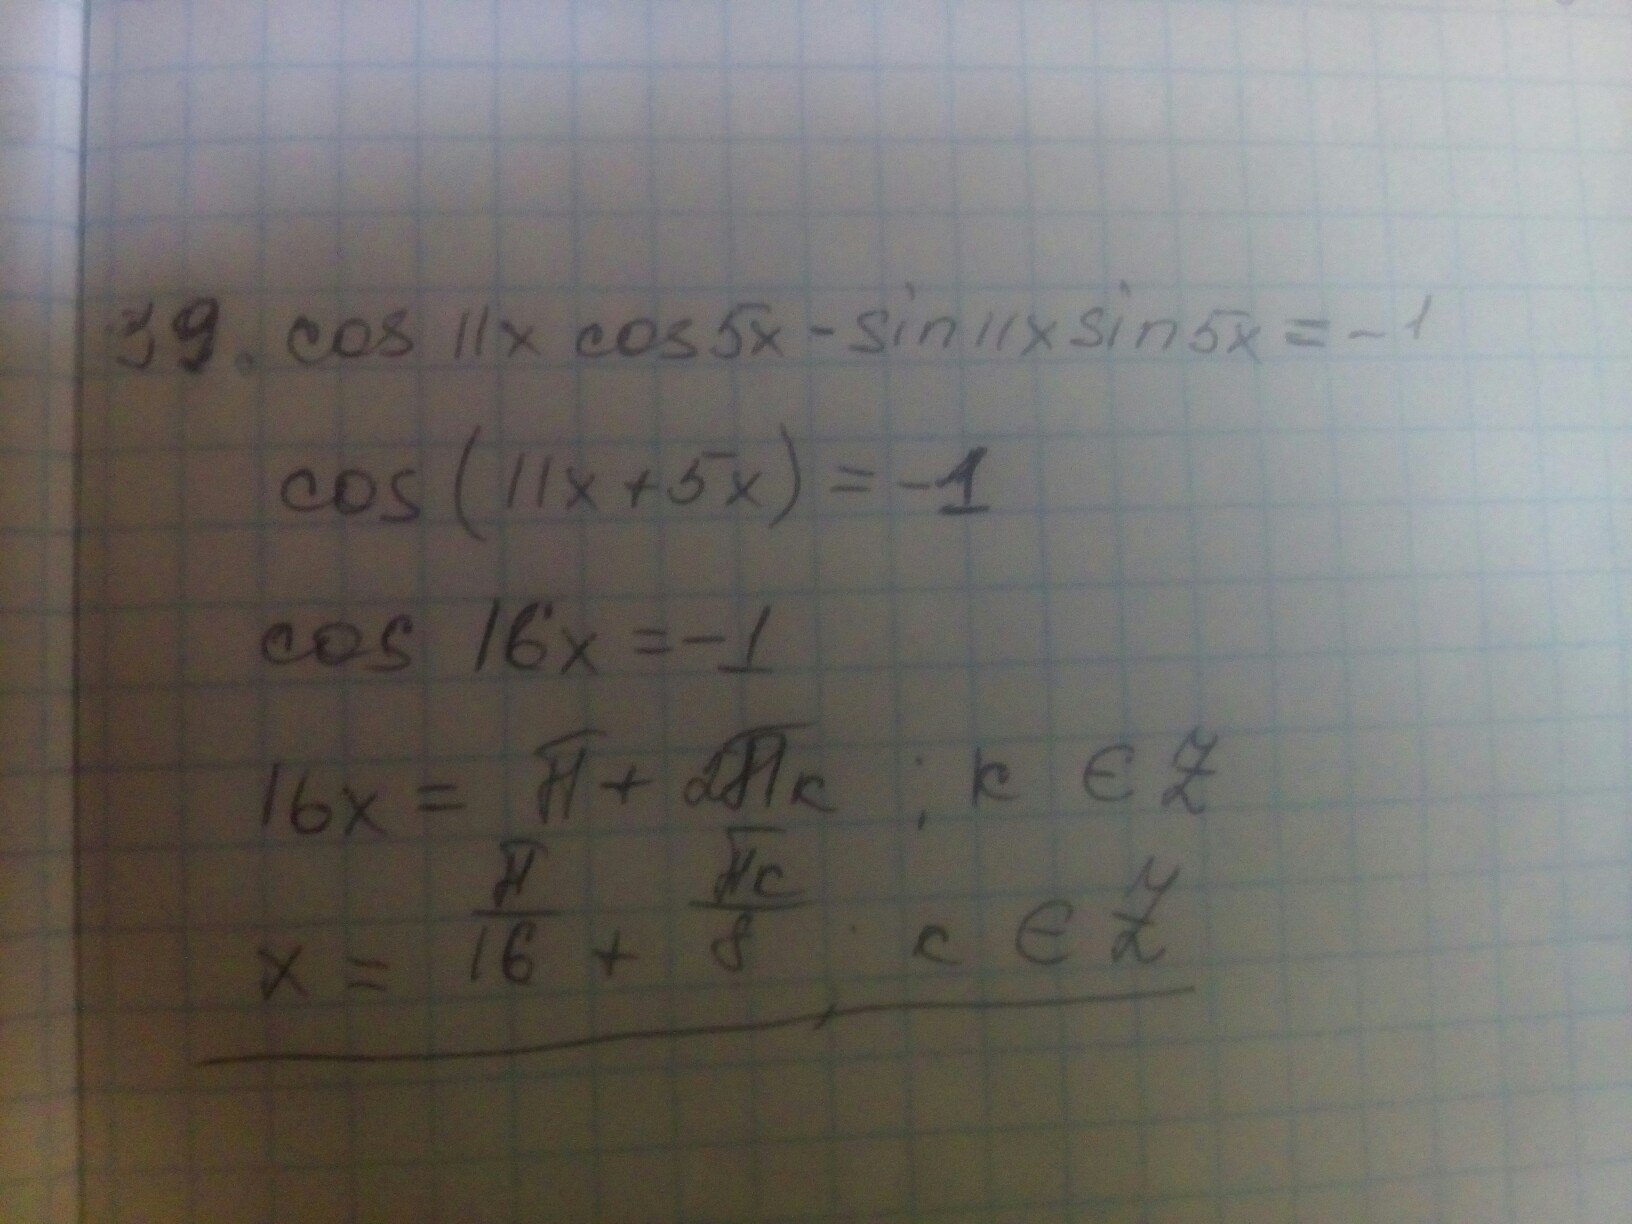 39. cos 11x cos 5x - sin 11x sin 5x = -1
cos (11x + 5x) = -1
cos 16x = -1
16x = π + 2πк ; к ∈ Z
x = π/16 + πк/8 к ∈ Z